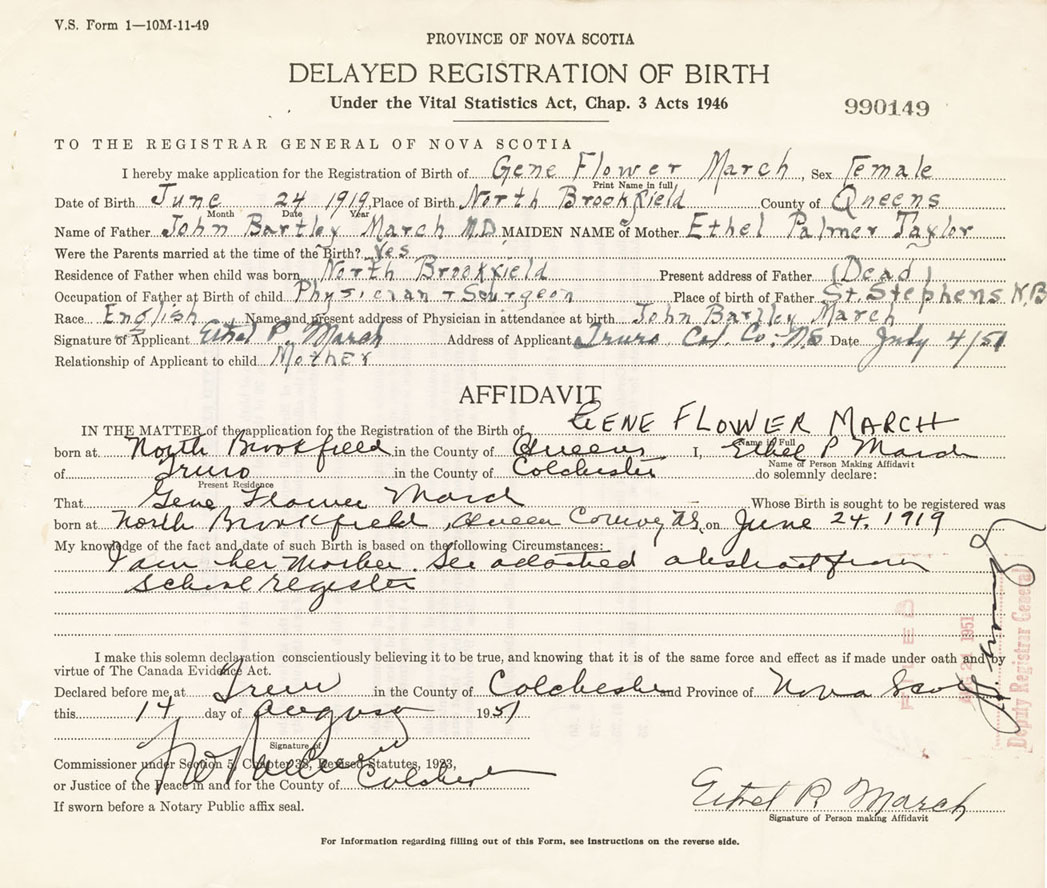 V.S. Form 1—10M-11-49
PROVINCE OF NOVA SCOTIA
DELAYED REGISTRATION OF BIRTH
Under the Vital Statistics Act, Chap. 3 Acts 1946
990149
TO THE REGISTRAR GENERAL OF NOVA SCOTIA
I hereby make application for the Registration of Birth of Gene Flower March, Sex Female
Print Name in full
Date of Birth June 24 1919, Place of Birth North Brookfield County of Queens
Month Date Year
Name of Father John Bartley March M.D. MAIDEN NAME of Mother Ethel Palmer Taylor
Were the Parents married at the time of the Birth? Yes
Residence of Father when child was born North Brookfield Present address of Father (Dead)
Occupation of Father at Birth of child Physician & Surgeon Place of birth of Father St. Stephens N.B
Race English Name and present address of Physician in attendance at birth John Bartley March
Signature of Applicant Ethel P. March Address of Applicant Truro Col. Co. N.S Date July 4/51
Relationship of Applicant to child Mother
AFFIDAVIT
IN THE MATTER of the application for the Registration of the Birth of GENE FLOWER MARCH
Name in Full
born at North Brookfield in the County of Queens I, Ethel P March
Name of Person Making Affidavit
of Truro in the County of Colchester do solemnly declare:
Present Residence
That Gene Flower March Whose Birth is sought to be registered was
born at North Brookfield, Queen County N.S. on June 24, 1919
My knowledge of the fact and date of such Birth is based on the following Circumstances:
I am her Mother. See attached abstract from
School register
I make this solemn declaration conscientiously believing it to be true, and knowing that it is of the same force and effect as if made under oath and by
virtue of The Canada Evidence Act.
Declared before me at Truro in the County of Colchester and Province of Nova Scotia
this 14 day of August 1951
Signature of
Commissioner under Section 5, Chapter 38, Revised Statutes, 1923,
or Justice of the Peace in and for the County of Colchester
If sworn before a Notary Public affix seal.
Ethel P. March
Signature of Person making Affidavit
For Information regarding filling out of this Form, see instructions on the reverse side.
FILED
AUG 21 1951
Deputy Registrar General